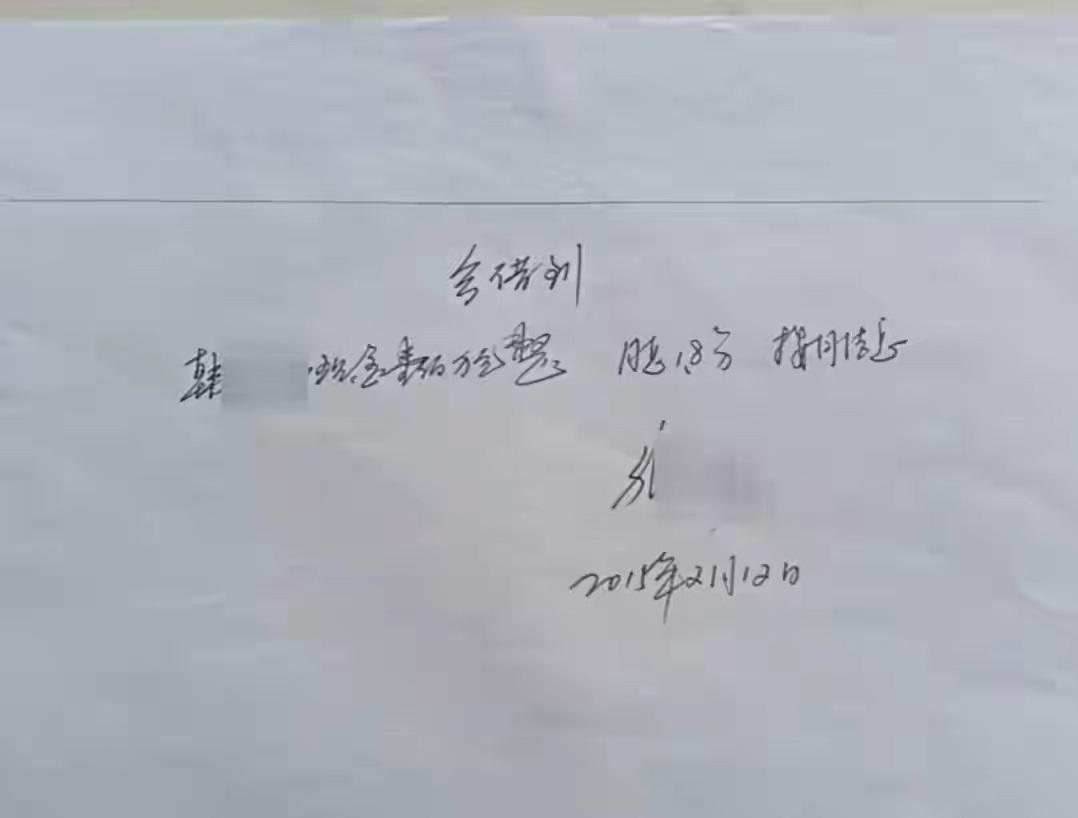 今借到
韩 现金 佰万元整 月息1.8分 按月结息
2015年2月12日